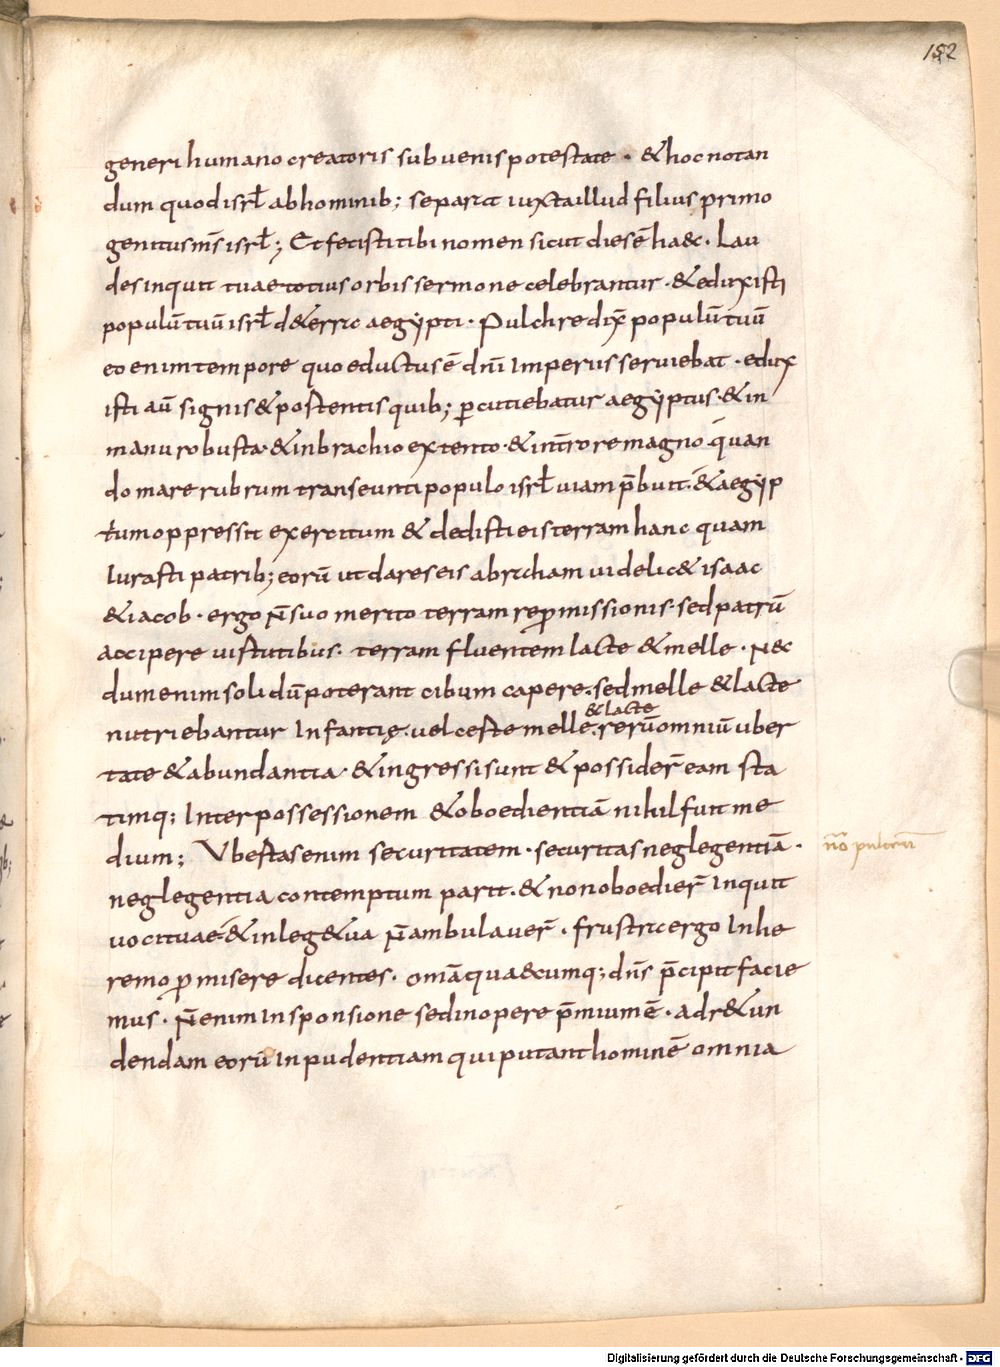 152
generi humano creatoris subvenis potestate · & hoc notan
dum quod isrł ab hominib; separat iuxta illud filius primo
genitus m̄s isrł; Et fecisti tibi nomen sicut dies ē haec · Lau
des inquit tuae totius orbis sermone celebrantur · & eduxisti
populū tuū isrł de terra aegypti · Pulchre dix̄ populū tuū
eo enim tempore quo eductus ē dn̄i Imperiis serviebat · edux
isti aū signis & postentis quib; p̄cutiebatur aegyptus · & in
manu robusta · & in brachio extento · & in t̄rore magno · quan
do mare rubrum transeunti populo isrł viam p̄buit · & aegyp
tum oppressit exercitum & dedisti eis terram hanc quam
Iurasti patrib; eorū ut dares eis abraham videlic& isaac
& iacob · ergo n̄ suo merito terram rep̄missionis · sed patrū
accipere vistutibus · terram fluentem lacte & melle · Nec
dum enim solidū poterant cibum capere · sed melle & lacte
& lacte
nutriebantur Infantię · vel ceste melle · rerū omniū uber
tate & abundantia · & ingressi sunt & possider̄ eam sta
timq; Inter possessionem & oboedientiā nihil fuit me
dium; Vbestas enim securitatem · securitas neglegentiā ·
nō pulcrū
neglegentia contemptum parit · & non oboedier̄ Inquit
voci tuae · & in leg& ua n̄ ambulaver̄ · frustra ergo In he
remo p̄misere dicentes · omā quaecumq; dn̄s p̄cipit facie
mus · N̄ enim In sponsione sed in opere p̄mium ē · ad r&un
dendam eorū Inpudentiam qui putant hominē omnia
Digitalisierung gefördert durch die Deutsche Forschungsgemeinschaft - DFG